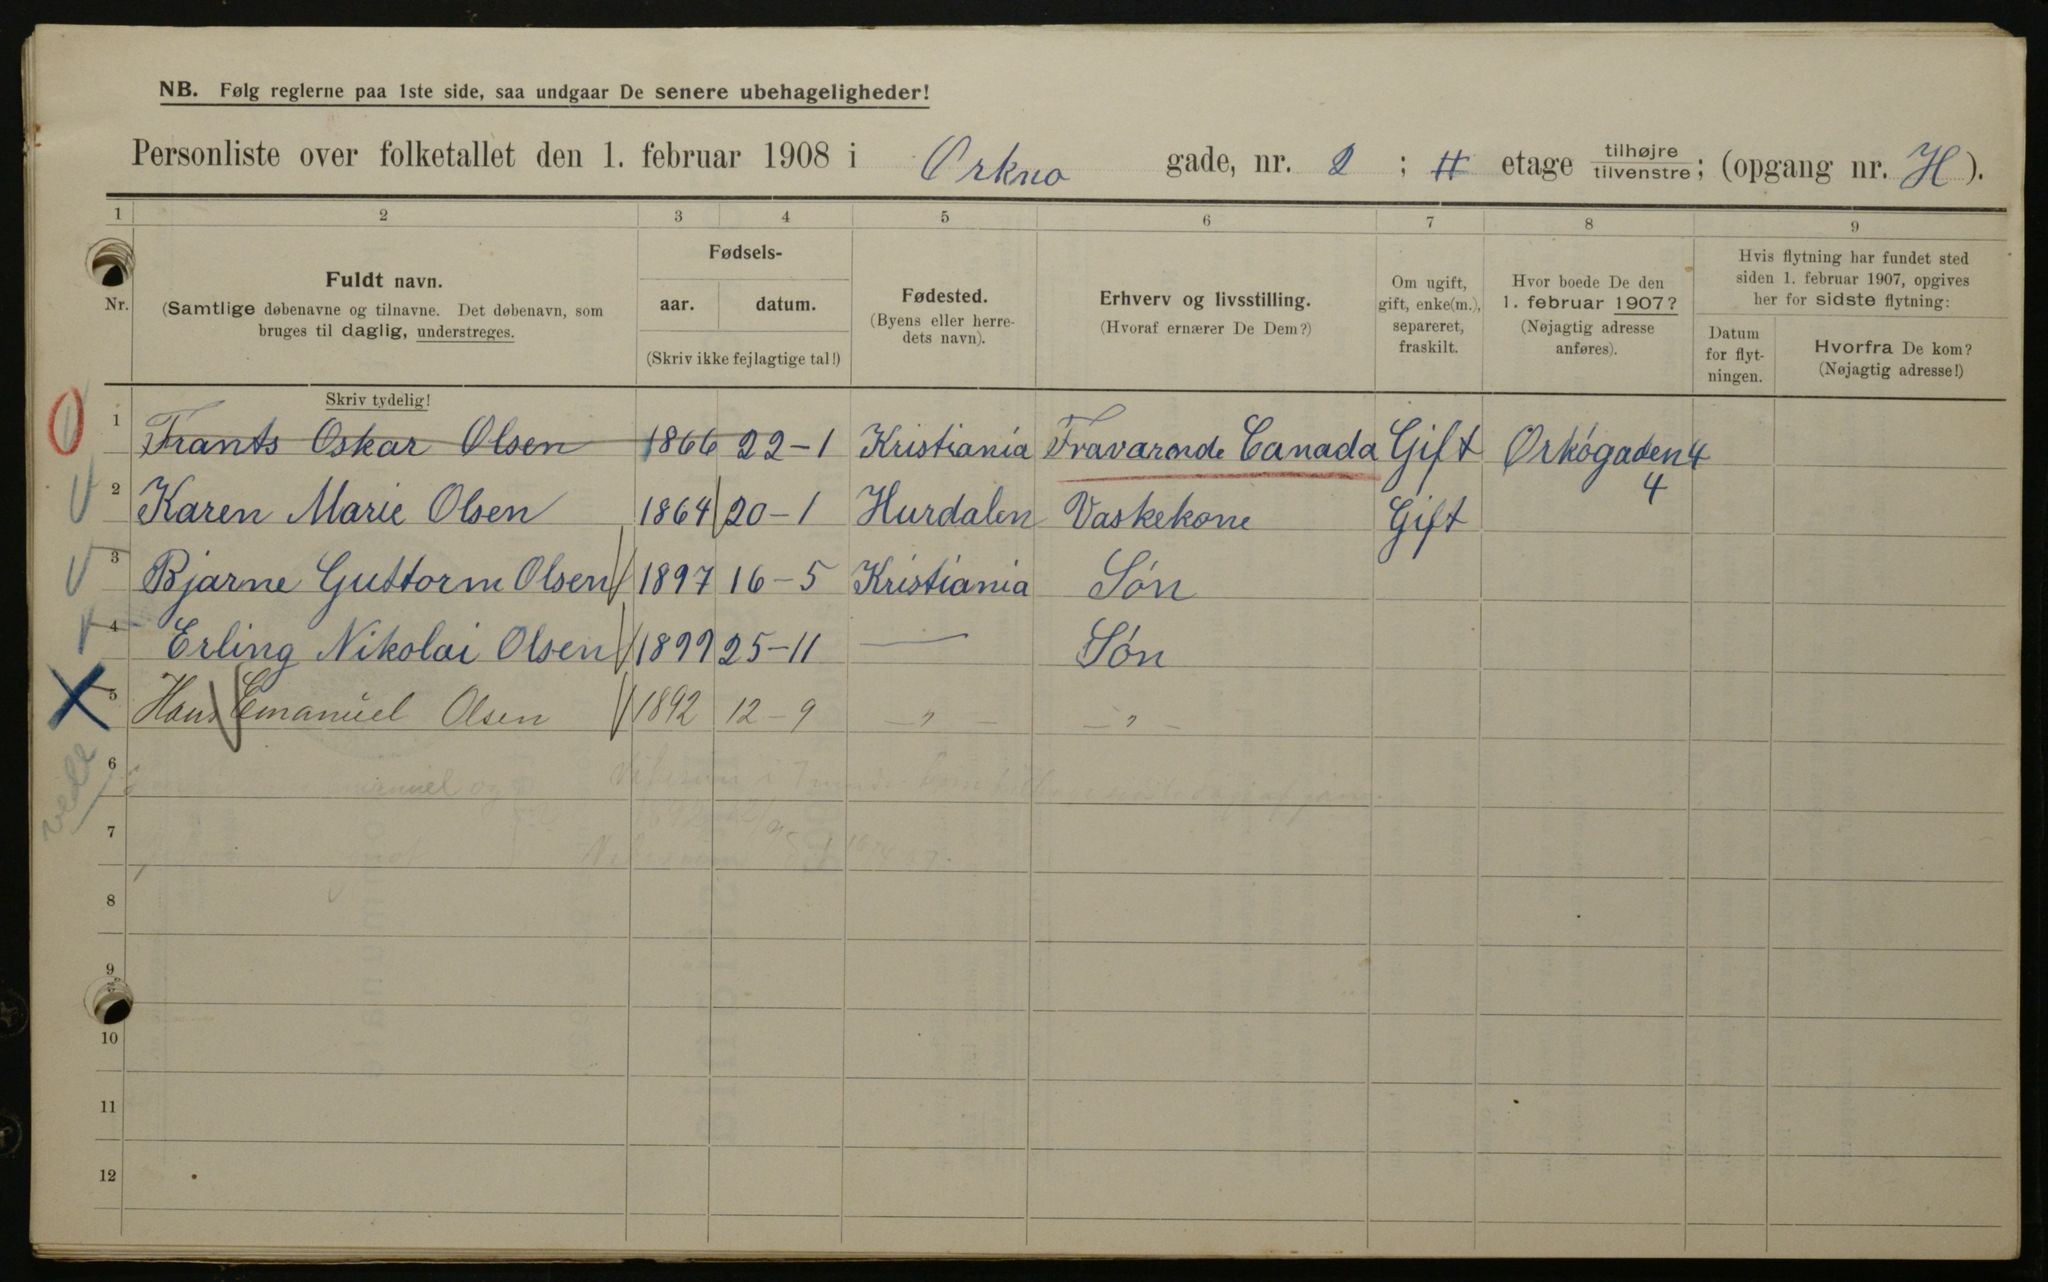 NB. Følg reglerne paa 1ste side, saa undgaar De senere ubehageligheder!
Personliste over folketallet den 1. februar 1908 i Orkno gade, nr. 2 ; # etage tilhøjre/tilvenstre; (opgang nr. H).
1 2 3 4 5 6 7 8 9
Nr.
Fuldt navn.
(Samtlige døbenavne og tilnavne. Det døbenavn, som
bruges til daglig, understreges.
Skriv tydelig!
Fødsels-
aar. datum.
(Skriv ikke fejlagtige tal!)
Fødested.
(Byens eller herre-
dets navn).
Erhverv og livsstilling.
(Hvoraf ernærer De Dem?)
Om ugift,
gift, enke(m.),
separeret,
fraskilt.
Hvor boede De den
1. februar 1907?
(Nøjagtig adresse
anføres).
Hvis flytning har fundet sted
siden 1. februar 1907, opgives
her for sidste flytning:
Datum
for flyt-
ningen.
Hvorfra De kom?
(Nøjagtig adresse!)
1 Frants Oskar Olsen 1866 22-1 Kristiania Fravarende Canada Gift Orkógaden 4
4
2 Karen Marie Olsen 1864 20-1 Hurdalen Vaskekone Gift
3 Bjarne Guttorm Olsen 1897 16-5 Kristiania Són
4 Erling Nikolai Olsen 1899 25-11 — Són
5 Hans Emanuel Olsen 1892 12-9 —"— —"—
6
7
8
9
10
11
12